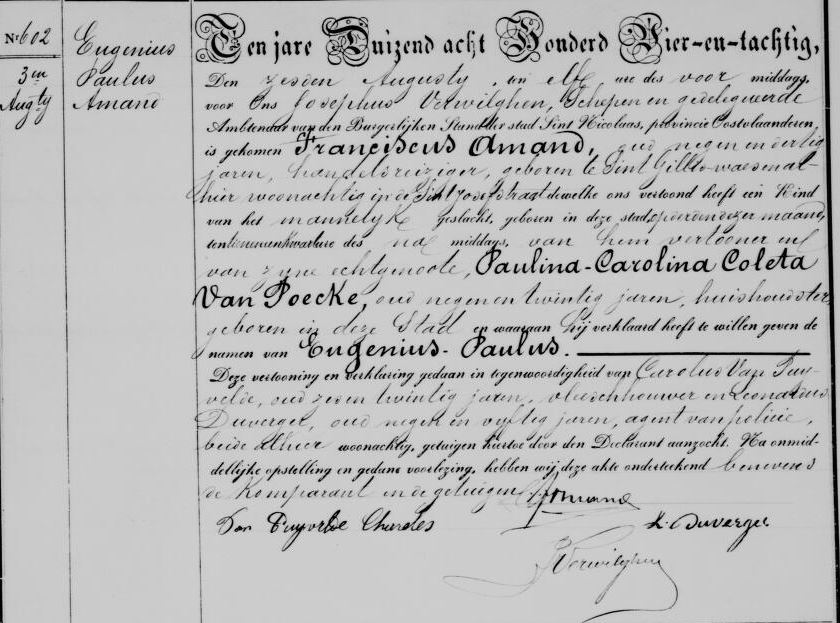 Nr 602
3en
Augty
Eugenius
Paulus
Amand
Ten jare Duizend acht Honderd Vier-en-tachtig,
Den zesden Augusty, ten elf ure des voor middags,
voor Ons Josephus Verwilghen, Schepen en gedelegueerde
Ambtenaar van den Burgerlijken Stand der stad Sint Nicolaas, provincie Oostvlaanderen,
is gekomen Franciscus Amand, oud negen en dertig
jaren, handelsreiziger, geboren te Sint Gillis-waes en al-
hier woonachtig in de Sint Josefstraat dewelke ons vertoond heeft een Kind
van het mannelyke geslacht, geboren in deze stad, op derden dezer maand,
ten tienen en kwart ure des na middags, van hem vertooner en
van zyne echtgenoote, Paulina-Carolina Coleta
Van Poecke, oud negen en twintig jaren, huishoudster,
geboren in deze Stad en waaraan hij verklaard heeft te willen geven de
namen van Eugenius-Paulus.
Deze vertooning en verklaring gedaan in tegenwoordigheid van Carolus Van Puy-
velde, oud zes en twintig jaren, vleeschhouwer en Leonardus
Duverger, oud negen en vyftig jaren, agent van policie,
beide alhier woonachtig, getuigen hiertoe door den Declarant aanzocht. Na onmid-
dellijke opstelling en gedane voorlezing, hebben wij deze akte onderteekend benevens
de Komparant en de getuigen. Amand
Van Puyvelde Charles L. Duverger
J Verwilghen